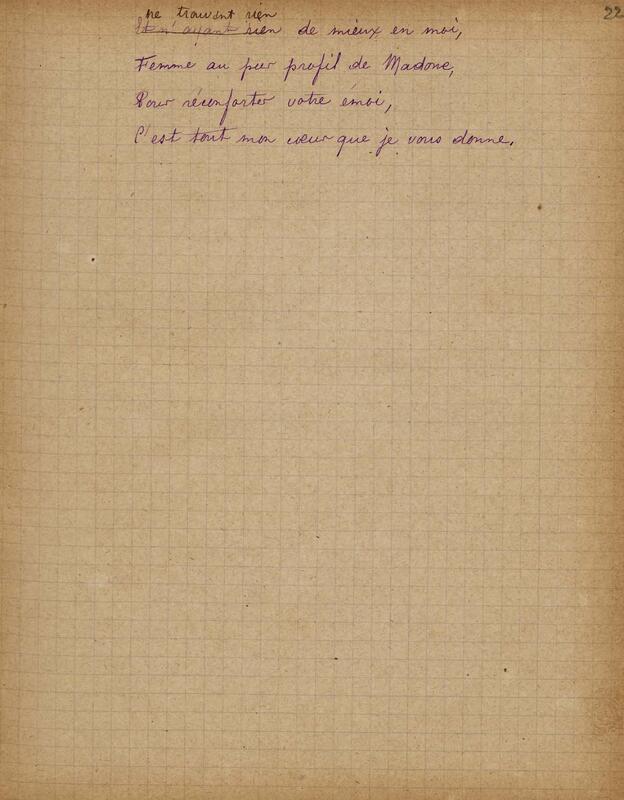 22
ne trouvant rien
Et n'ayant rien de mieux en moi,
Femme au pur profil de Madone,
Pour réconforter votre émoi,
C'est tout mon cœur que je vous donne.